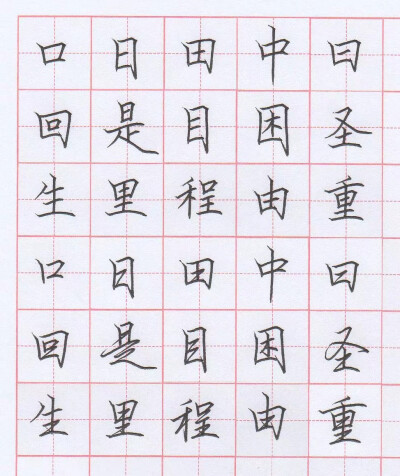 口日田中曰
回是目困圣
生里程由重
口日田中曰
回是目困圣
生里程由重